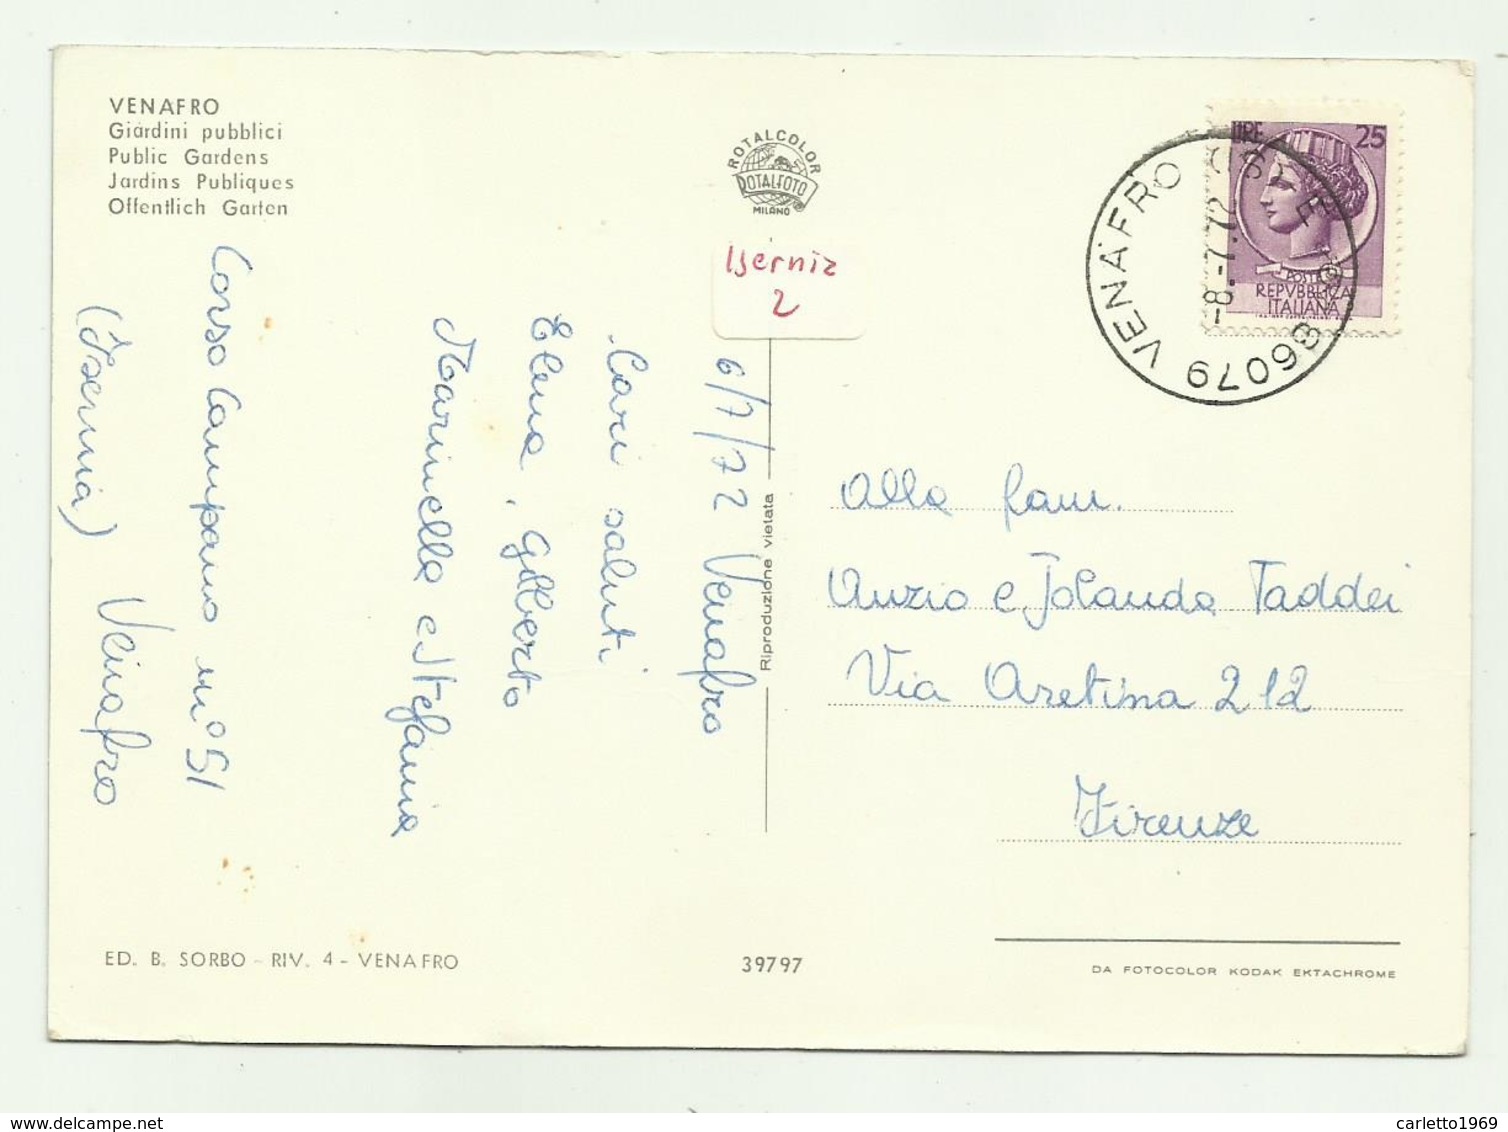 VENAFRO
Giardini pubblici
Public Gardens
Jardins Publiques
Offentlich Garten
ROTALCOLOR
ROTALFOTO
MILANO
Isernia
2
LIRE 25
POSTE
REPVBBLICA
ITALIANA
86079 VENAFRO (IS)
-8.-7.72
6/7/72 Venafro
Cari saluti
Elena, Gilberto
Marinella e Stefania
Corso Campano n° 51
(Isernia) Venafro
Alla fam.
Anzio e Jolanda Taddei
Via Aretina 212
Firenze
Riproduzione vietata
ED. B. SORBO - RIV. 4 - VENAFRO
39797
DA FOTOCOLOR KODAK EKTACHROME
www.delcampe.net
carletto1969